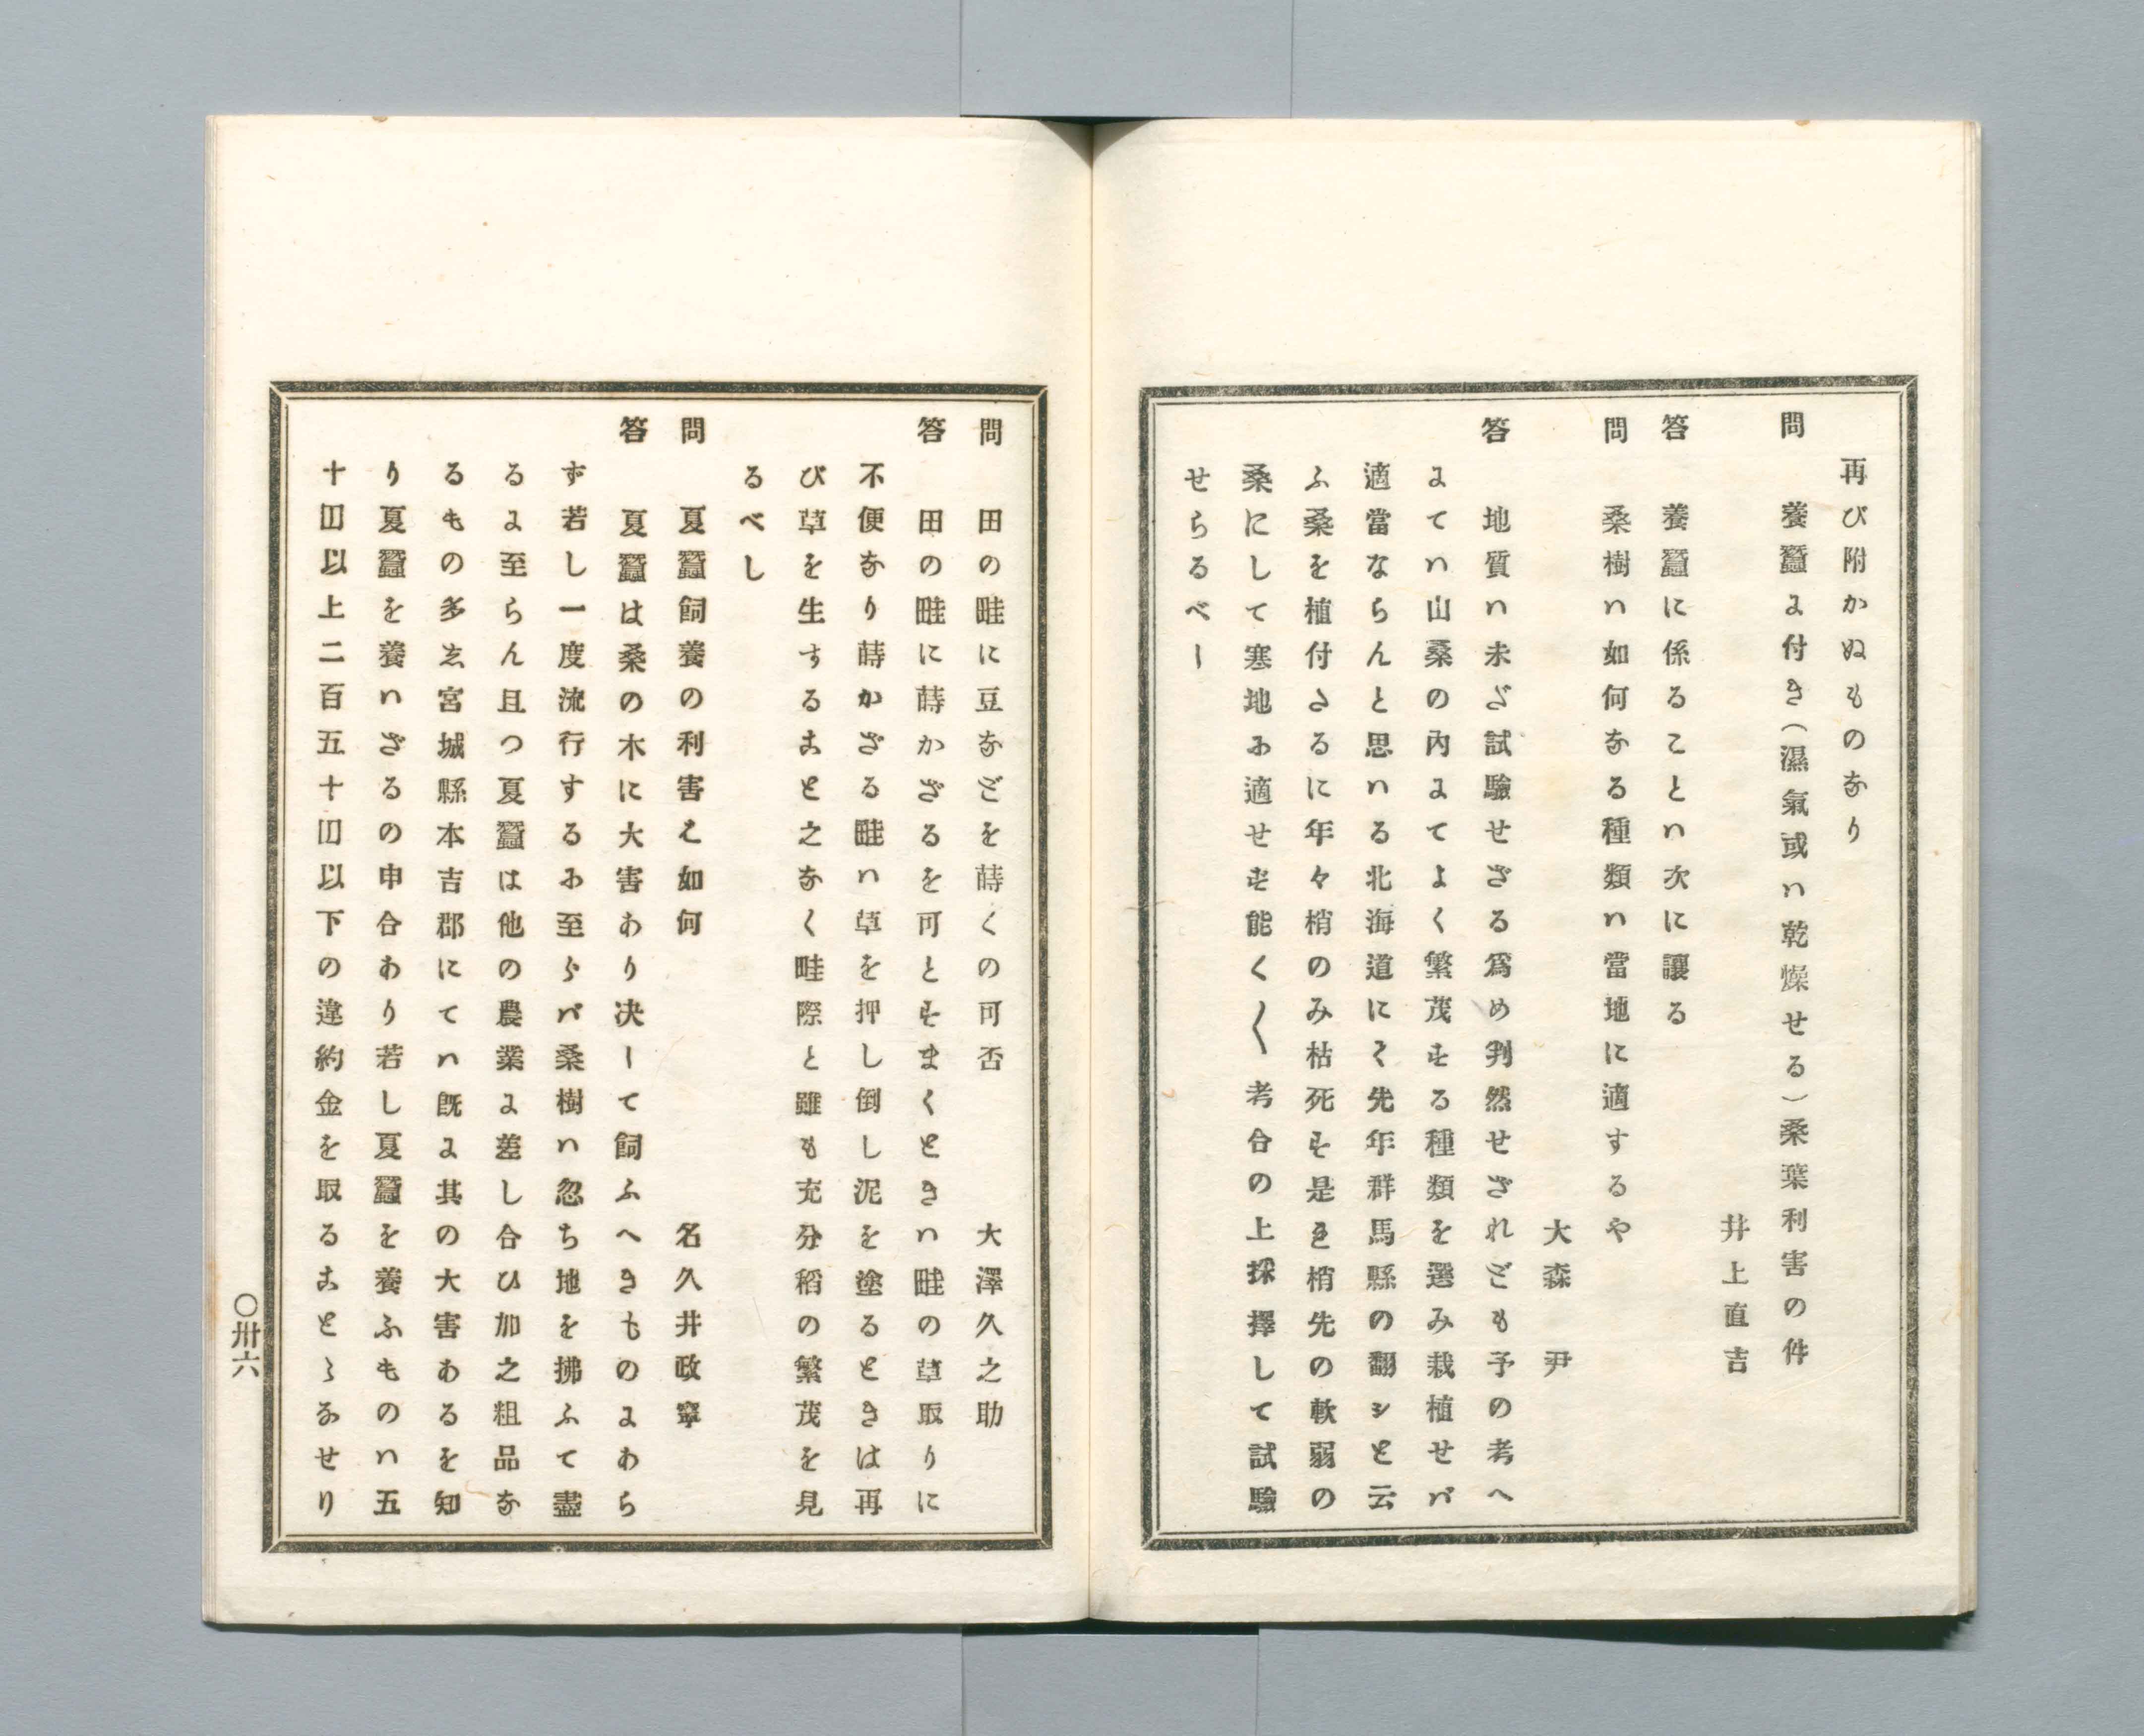 再び附かぬものなり
問　養蠶に付き（濕氣或ハ乾燥せる）桑葉利害の件
井上直吉
答　養蠶に係ることハ次に讓る
問　桑樹ハ如何なる種類ハ當地に適するや
大森　尹
答　地質ハ未ざ試驗せざる爲め判然せざれども予の考へ
にてハ山桑の內にてよく繁茂する種類を選み栽植せバ
適當ならんと思ハる北海道にて先年群馬縣の翻シと云
ふ桑を植付さるに年々梢のみ枯死す是れ梢先の軟弱の
桑にして寒地お適せず能く〱考合の上採擇して試驗
せらるべし
問　田の畦に豆などを蒔くの可否
大澤久之助
答　田の畦に蒔かざるを可とすまくときハ畦の草取りに
不便なり蒔かざる畦ハ草を押し倒し泥を塗るときは再
び草を生すること之なく畦際と雖も充分稻の繁茂を見
るべし
問　夏蠶飼養の利害は如何
名久井政寧
答　夏蠶は桑の木に大害あり决して飼ふへきものにあら
ず若し一度流行するお至らバ桑樹ハ忽ち地を拂ふて盡
るに至らん且つ夏蠶は他の農業に差し合ひ加之粗品な
るもの多ゑ宮城縣本吉郡にてハ既に其の大害あるを知
り夏蠶を養ハざるの申合あり若し夏蠶を養ふものハ五
十囙以上二百五十囙以下の違約金を取ることゝなせり
〇卅六